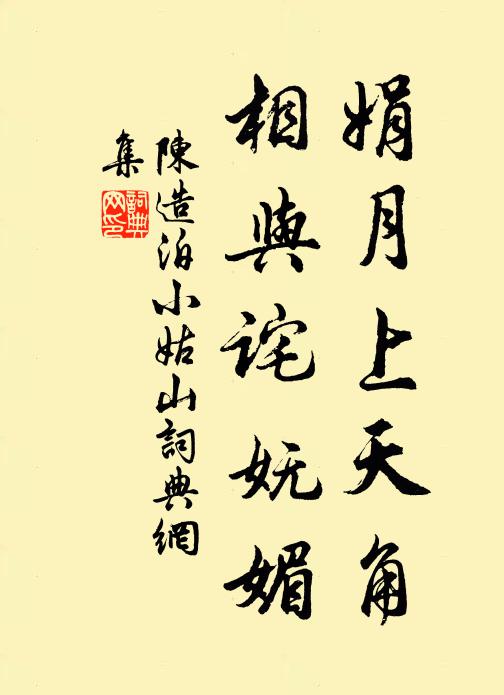 娟月上天角
相與詫妩媚
陳造泊小姑山詞典網
集
詞典網印